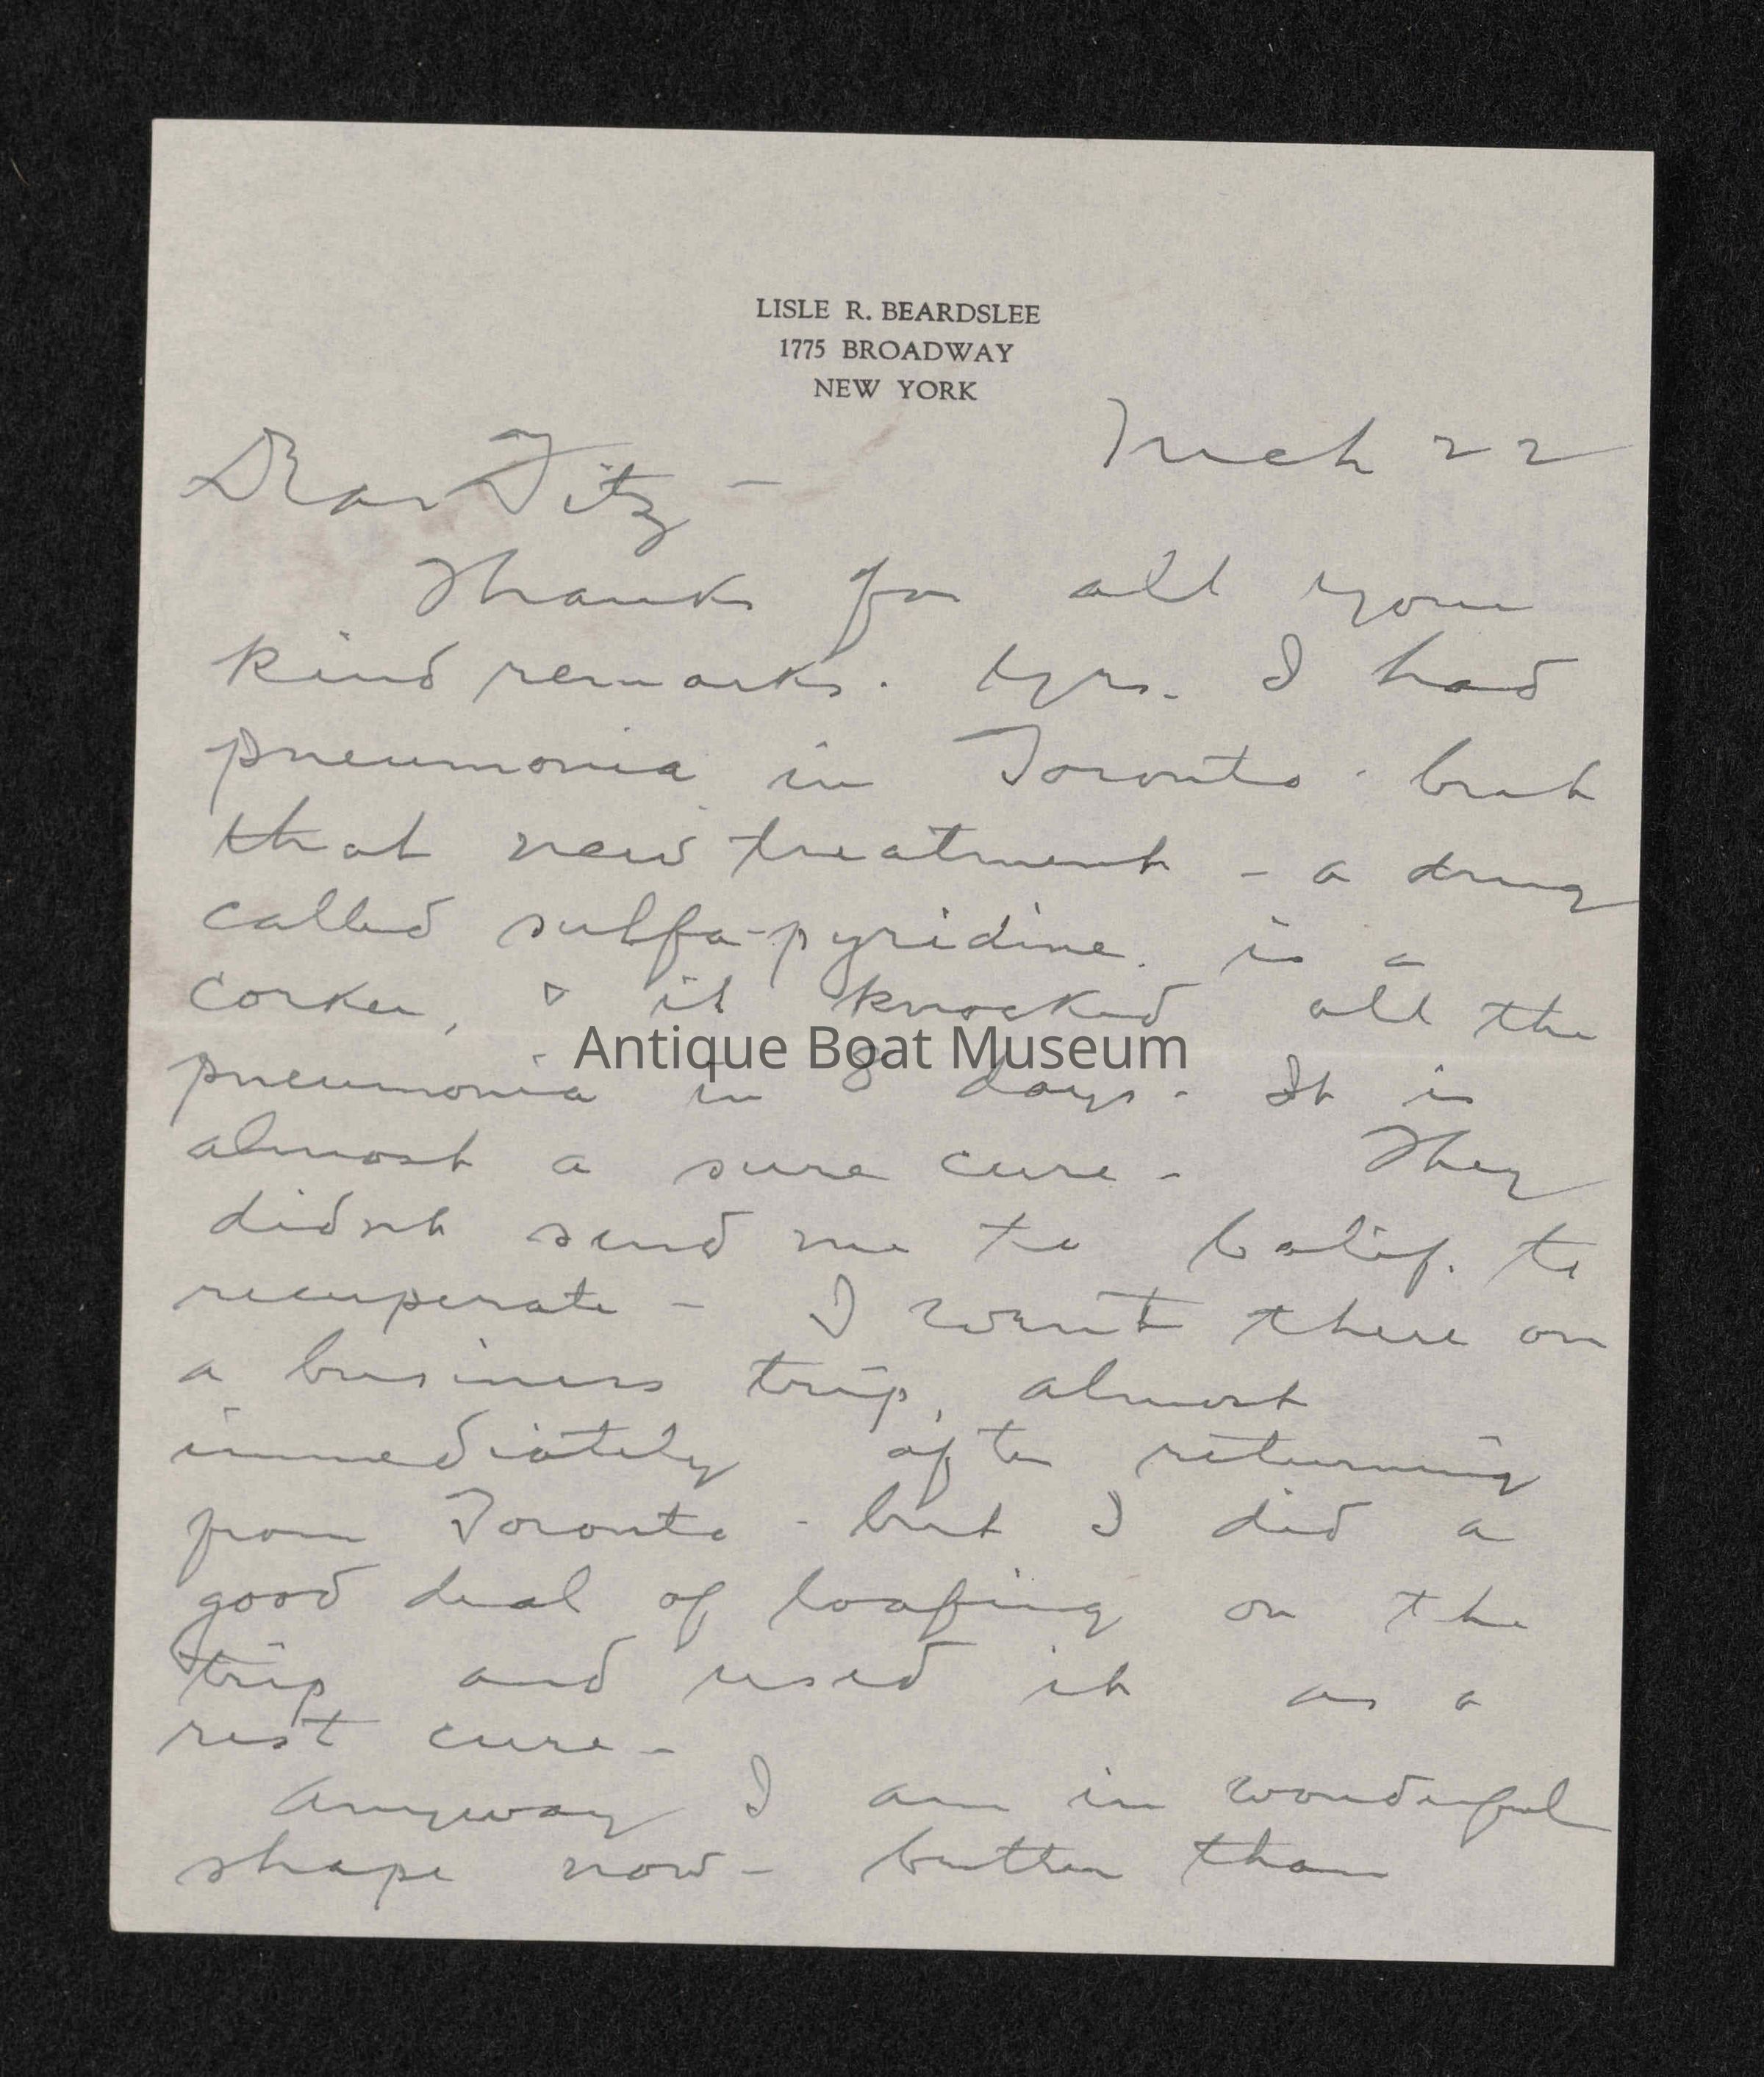 LISLE R. BEARDSLEE
1775 BROADWAY
NEW YORK
Mch 22
Dear Fitz -
Thanks for all your
kind remarks. Yes. I had
pneumonia in Toronto - but
that new treatment - a drug
called sulfa-pyridine. is a
corker, & it knocked all the
Antique Boat Museum
pneumonia in 8 days. It is
almost a sure cure - They
didnt send me to Calif. to
recuperate - I went there on
a business trip, almost
immediately after returning
from Toronto - but I did a
good deal of loafing on the
trip and used it as a
rest cure -
Anyway I am in wonderful
shape now - better than